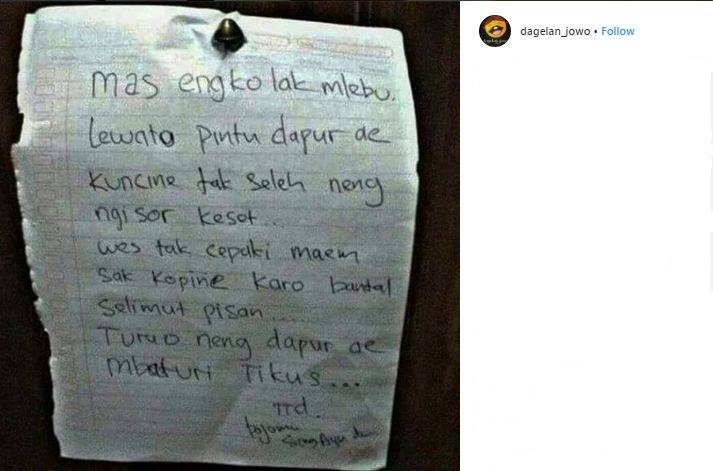 mas engko lak mlebu.
lewato pintu dapur ae
kuncine tak seleh neng
ngisor keset...
wes tak cepaki maem
sak kopine karo bantal
selimut pisan...
Turuo neng dapur ae
mbaturi Tikus...
TTd.
bojomu
dagelan_jowo • Follow